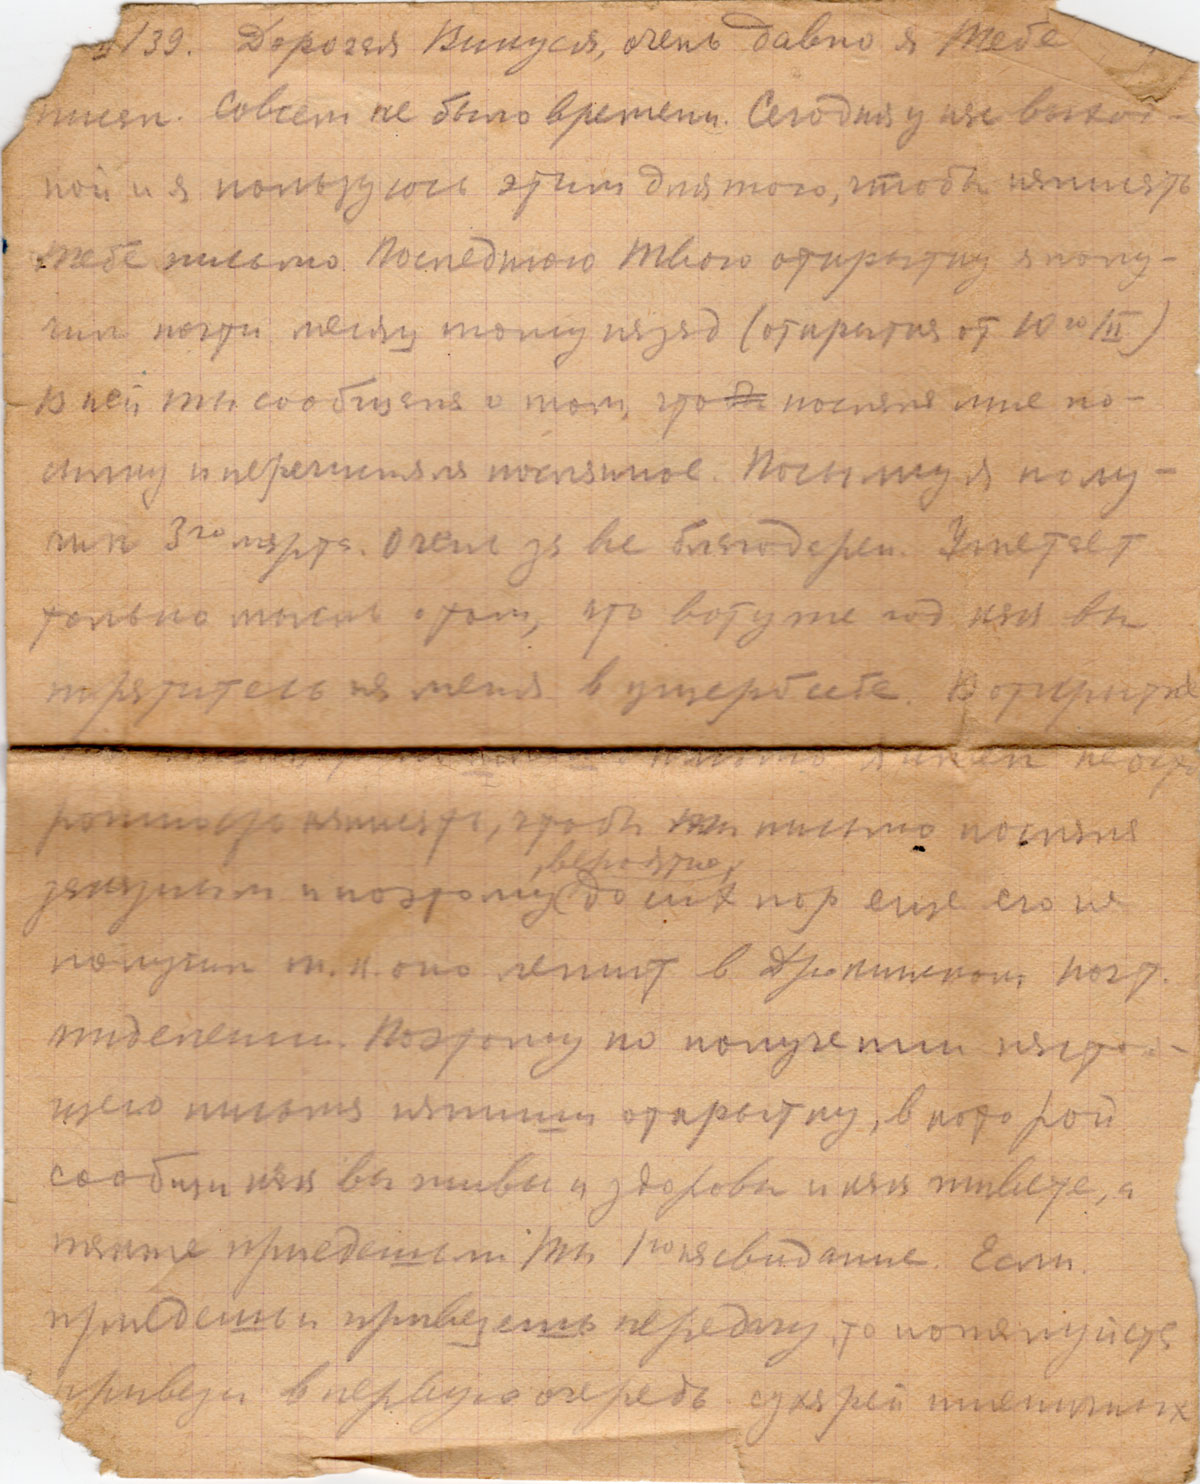 /39. Дорогая Викуся, очень давно я Тебе
писал. Совсем не было времени. Сегодня у нас выход-
ной и я пользуюсь этим для того, чтобы написать
Тебе письмо. Последнюю Твою открытку я полу-
чил почти месяц тому назад (открытка от 10го/III)
В ней Ты сообщала о том, что послала мне по-
сылку и перечисляла посланное. Посылку я полу-
чил 3го марта. Очень за все благодарен. Угнетает
только мысль о том, что вот уже год как вы
тратитесь на меня в ущерб себе. В открытке
я имел неосто
рожность написать, чтобы письмо послала
заказным и поэтому, вероятно, до сих пор еще его не
получил т.к. оно лежит в почт.
отделении. Поэтому по получении настоя-
щего письма напиши открытку, в которой
сообщи как вы живы и здоровы и как живете, а
также приедешь ли Ты 1го на свидание. Если
приедешь и привезешь передачу, то пожалуйста
привези в первую очередь сухарей пшеничных